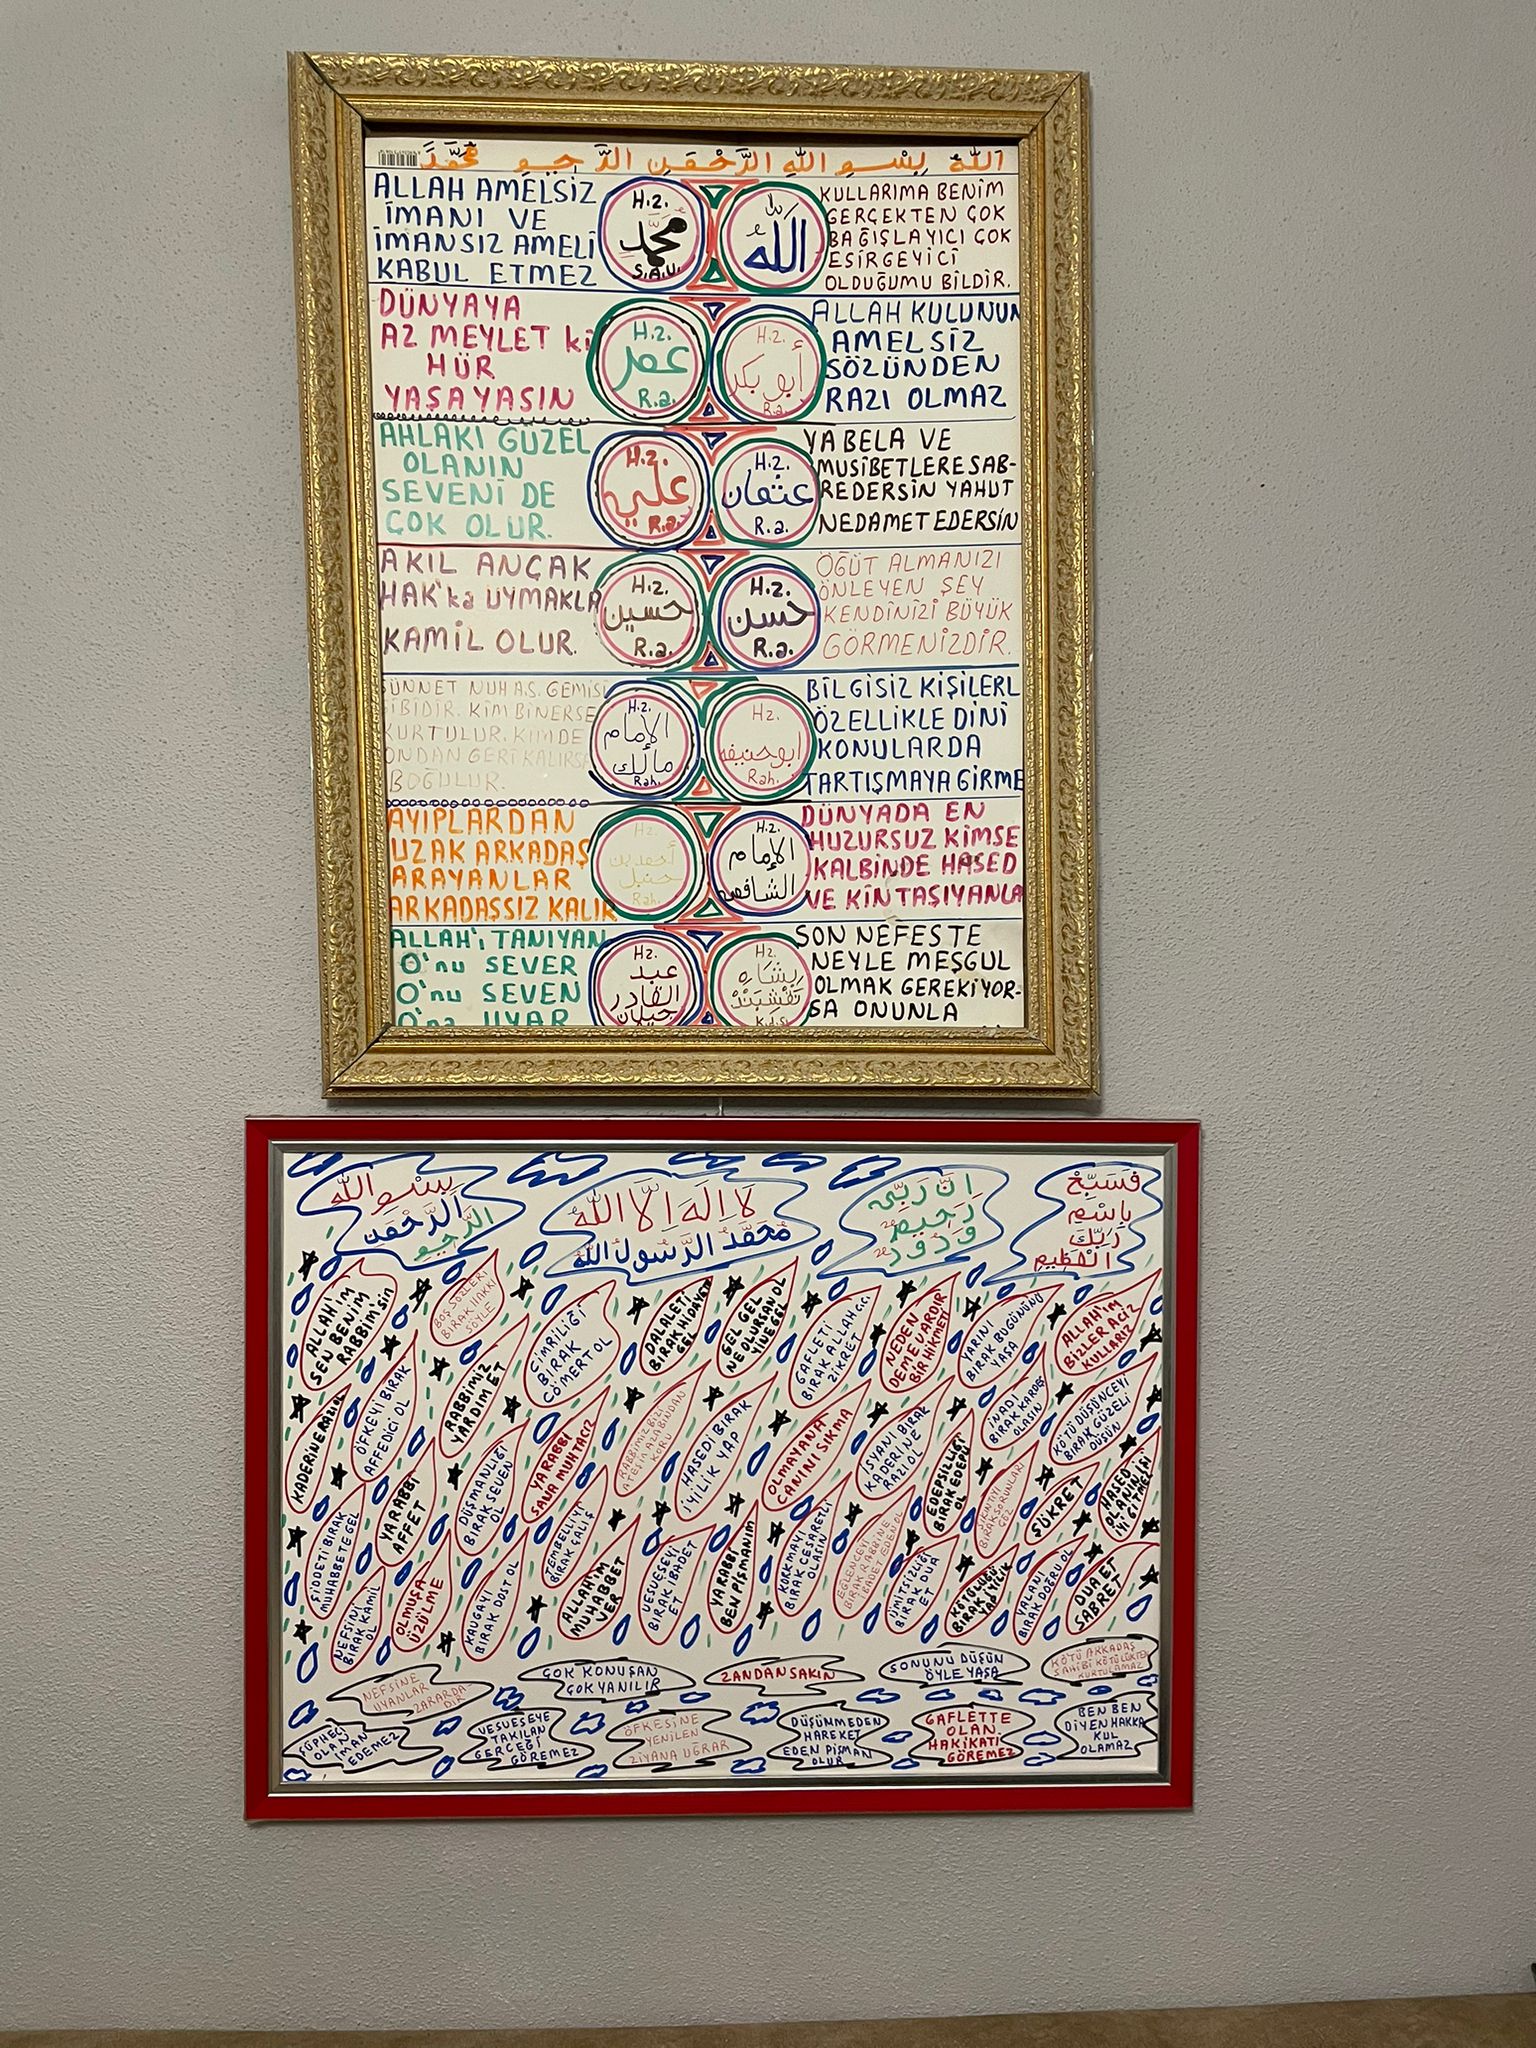 اللّٰهُ بِسْمِ اللّٰهِ الرَّحْمٰنِ الرَّحِيمِ مُحَمَّدْ
ALLAH AMELSİZ
İMANI VE
İMANSIZ AMELİ
KABUL ETMEZ
H.z.
مُحَمَّد
S.A.V.
اللّٰهُ
KULLARIMA BENİM
GERÇEKTEN ÇOK
BAĞIŞLAYICI ÇOK
ESİRGEYİCİ
OLDUĞUMU BİLDİR.
DÜNYAYA
AZ MEYLET ki
HÜR
YAŞAYASIN
H.z.
عمر
R.a.
H.z.
أبو بكر
R.a.
ALLAH KULUNUN
AMELSİZ
SÖZÜNDEN
RAZI OLMAZ
AHLAKI GÜZEL
OLANIN
SEVENİ DE
ÇOK OLUR.
H.z.
علي
R.a.
H.z.
عثمان
R.a.
YA BELA VE
MUSİBETLERE SAB-
REDERSİN YAHUT
NEDAMET EDERSİN
AKIL ANÇAK
HAK'ka UYMAKLA
KAMİL OLUR.
H.z.
حسين
R.a.
H.z.
حسن
R.a.
ÖĞÜT ALMANIZI
ÖNLEYEN ŞEY
KENDİNİZİ BÜYÜK
GÖRMENİZDİR.
SÜNNET NUH A.S. GEMİSİ
GİBİDİR. KİM BİNERSE
KURTULUR. KİM DE
ONDAN GERİ KALIRSA
BOĞULUR.
H.z.
الإمام
مالك
Rah.
Hz.
ابو حنيفه
Rah.
BİLGİSİZ KİŞİLERL
ÖZELLİKLE DİNİ
KONULARDA
TARTIŞMAYA GİRME
AYIPLARDAN
UZAK ARKADAŞ
ARAYANLAR
ARKADAŞSIZ KALIR
Hz.
أحمد بن
حنبل
Rah.
H.z.
الإمام
الشافعي
DÜNYADA EN
HUZURSUZ KİMSE
KALBİNDE HASED
VE KİN TAŞIYANLA
ALLAH'ı TANIYAN
O'nu SEVER
O'nu SEVEN
O'na UYAR
Hz.
عبد
القادر
جيلان
Hz.
نقشبند
SON NEFESTE
NEYLE MEŞGUL
OLMAK GEREKİYOR-
SA ONUNLA
بِسْمِ اللّٰهِ
الرَّحْمٰنِ
الرَّحِيمِ
لَا اِلٰهَ اِلَّا اللّٰهُ
مُحَمَّدُ الرَّسُولُ اللّٰهُ
اِنَّ رَبّٖى
رَحٖيمٌ
وَدُودٌ
فَسَبِّحْ
بِاسْمِ
رَبِّكَ
الْعَظٖيمِ
ALLAH'IM
SEN BENİM
RABBİM'SİN
BOŞ SÖZLERİ
BIRAK HAKKI
SÖYLE
CİMRİLİĞİ
BIRAK
CÖMERT OL
DALALETİ
BIRAK HİDAYETE
GEL
GEL GEL
NE OLURSAN OL
YİNE GEL
GAFLETİ
BIRAK ALLAH C.C.
ZİKRET
NEDEN
DEME VARDIR
BİR HİKMETİ
YARINI
BIRAK BUGÜNÜNÜ
YAŞA
ALLAH'IM
BİZLER ACİZ
KULLARIZ
KADERİNE RAZI OL
ÖFKEYİ BIRAK
AFFEDİCİ OL
RABBİMİZ
YARDIM ET
YA RABBİ
SANA MUHTACIZ
RABBİMİZ BİZİ
ATEŞİN AZABINDAN
KORU
HASEDİ BIRAK
İYİLİK YAP
OLMAYANA
CANINI SIKMA
İSYANI BIRAK
KADERİNE
RAZI OL
İNADI
BIRAK KARDEŞ
OLASIN
KÖTÜ DÜŞÜNCEYİ
BIRAK GÜZELİ
DÜŞÜN
YA RABBİ
AFFET
DÜŞMANLIĞI
BIRAK SEVEN
OL
EDEPSİZLİĞİ
BIRAK EDEPLİ
OL
SIKINTIYI
BIRAK SORUNLARI
ÇÖZ
ŞÜKRET
HASED
OLANIN İŞİ
İYİ GİTMEZ
ŞİDDETİ BIRAK
MUHABBETE GEL
TEMBELLİYİ
BIRAK ÇALIŞ
NEFSİNİ
BIRAK KAMİL
OL
OLMUŞA
ÜZÜLME
KAVGAYI
BIRAK DOST OL
ALLAH'IM
MUHABBET
VER
VESVESEYİ
BIRAK İBADET
ET
YA RABBİ
BEN PİŞMANIM
KORKMAYI
BIRAK CESARETLİ
OLASIN
EĞLENCEYİ
BIRAK RABBİNE
İBADET EDEN OL
ÜMİTSİZLİĞİ
BIRAK DUA
ET
KÖTÜLÜĞÜ
BIRAK İYİLİK
YAP
YALANI
BIRAK DOĞRU OL
DUA ET
SABRET
NEFSİNE
UYANLAR
ZARARDA-
DIR
ÇOK KONUŞAN
ÇOK YANILIR
ZANDAN SAKIN
SONUNU DÜŞÜN
ÖYLE YAŞA
KÖTÜ ARKADAŞ
SAHİBİ KÖTÜLÜKTEN
KURTULAMAZ
ŞÜPHECİ
OLAN
İMAN
EDEMEZ
VESVESEYE
TAKILAN
GERÇEĞİ
GÖREMEZ
ÖFKESİNE
YENİLEN
ZİYANA UĞRAR
DÜŞÜNMEDEN
HAREKET
EDEN PİŞMAN
OLUR
GAFLETTE
OLAN
HAKİKATI
GÖREMEZ
BEN BEN
DİYEN HAKKA
KUL
OLAMAZ